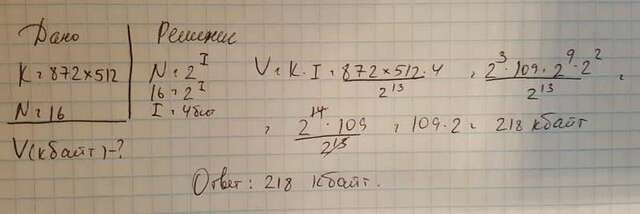 Дано
K = 872×512
N = 16
V(кбайт) - ?
Решение
N = 2^I
16 = 2^I
I = 4бит
V = K · I = 872×512·4 / 2^13 = 2^3 · 109 · 2^9 · 2^2 / 2^13 =
= 2^14 · 109 / 2^13 = 109 · 2 = 218 кбайт
Ответ: 218 Кбайт.